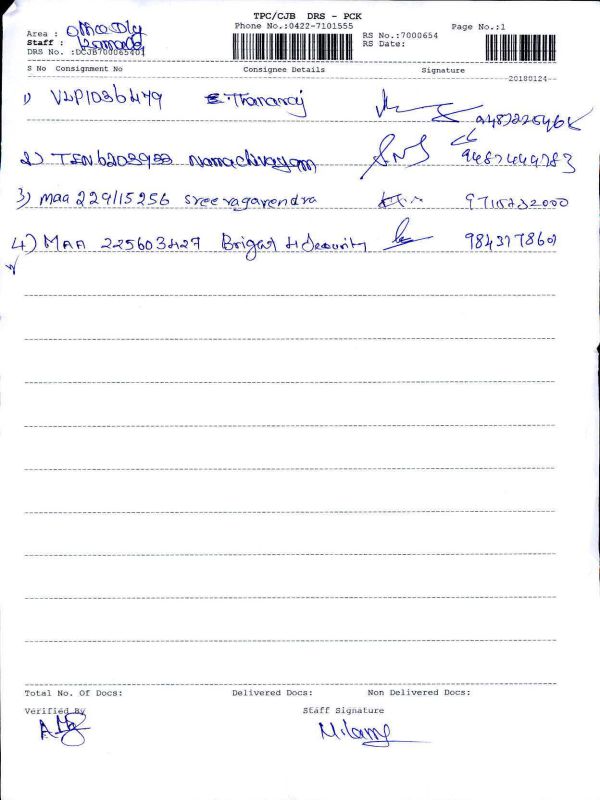 TPC/CJB DRS - PCK
Phone No.:0422-7101555
Page No.:1
Area : Office Dly
RS No.:7000654
Staff :
RS Date:
DRS No. :DCJB700065401
S No Consignment No Consignee Details Signature
20180124
1) VLP1036479 Thanaraj
2) TEN6203933 Namachivayam 9487449783
3) maa 229115256 sree ragavendra
4) MAA 225603427 Brigat 4 Security
Total No. Of Docs: Delivered Docs: Non Delivered Docs:
Verified By Staff Signature